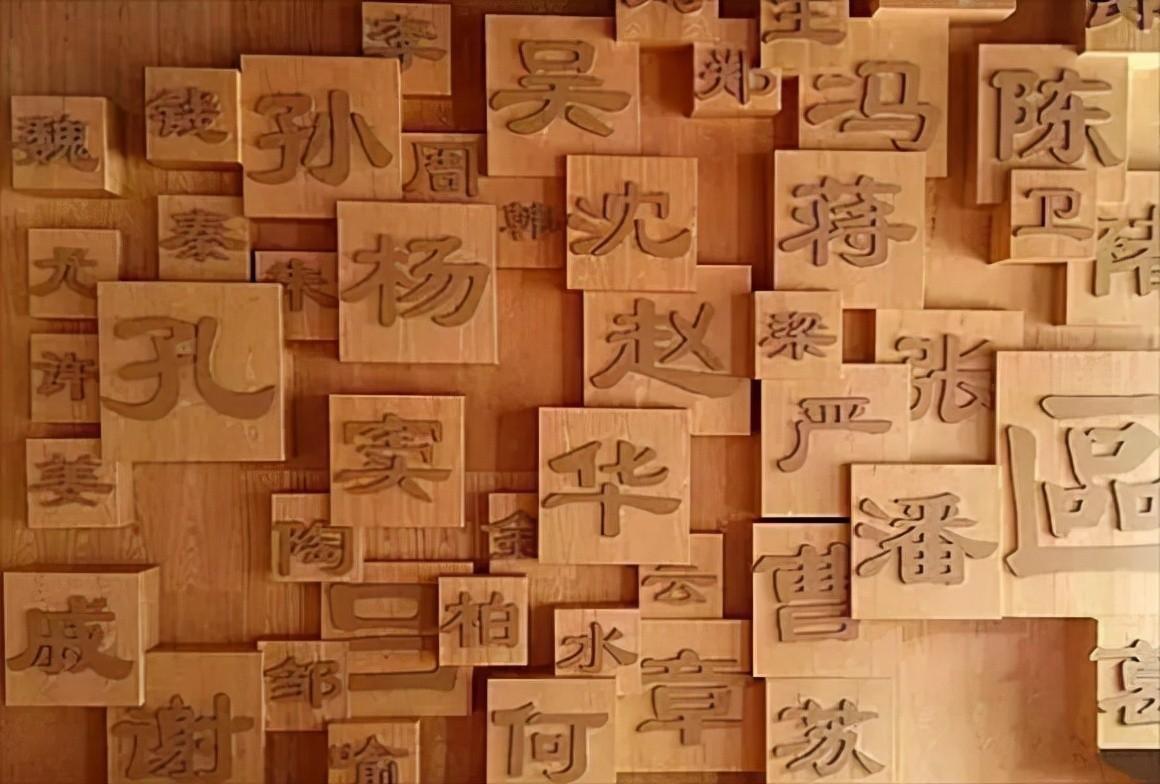 李
吴
郑
王
冯
陈
魏
钱
孙
周
韩
沈
蒋
卫
褚
秦
尤
朱
杨
赵
梁
张
孔
许
严
區
姜
窦
华
潘
陶
金
云
曹
戚
吕
柏
水
邹
章
葛
谢
喻
何
苏